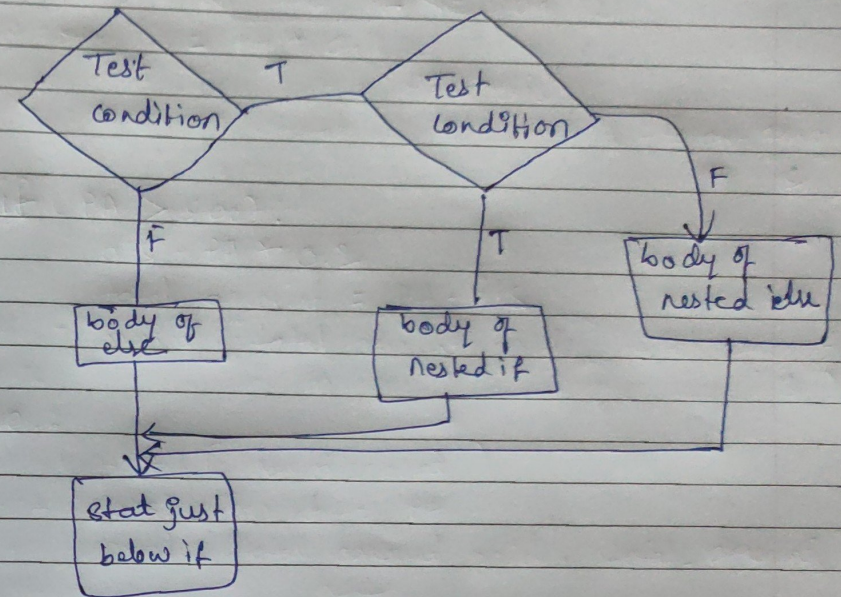 Test
condition
T
Test
condition
F
F
T
body of
else
body of
nested if
body of
nested else
stat just
below if